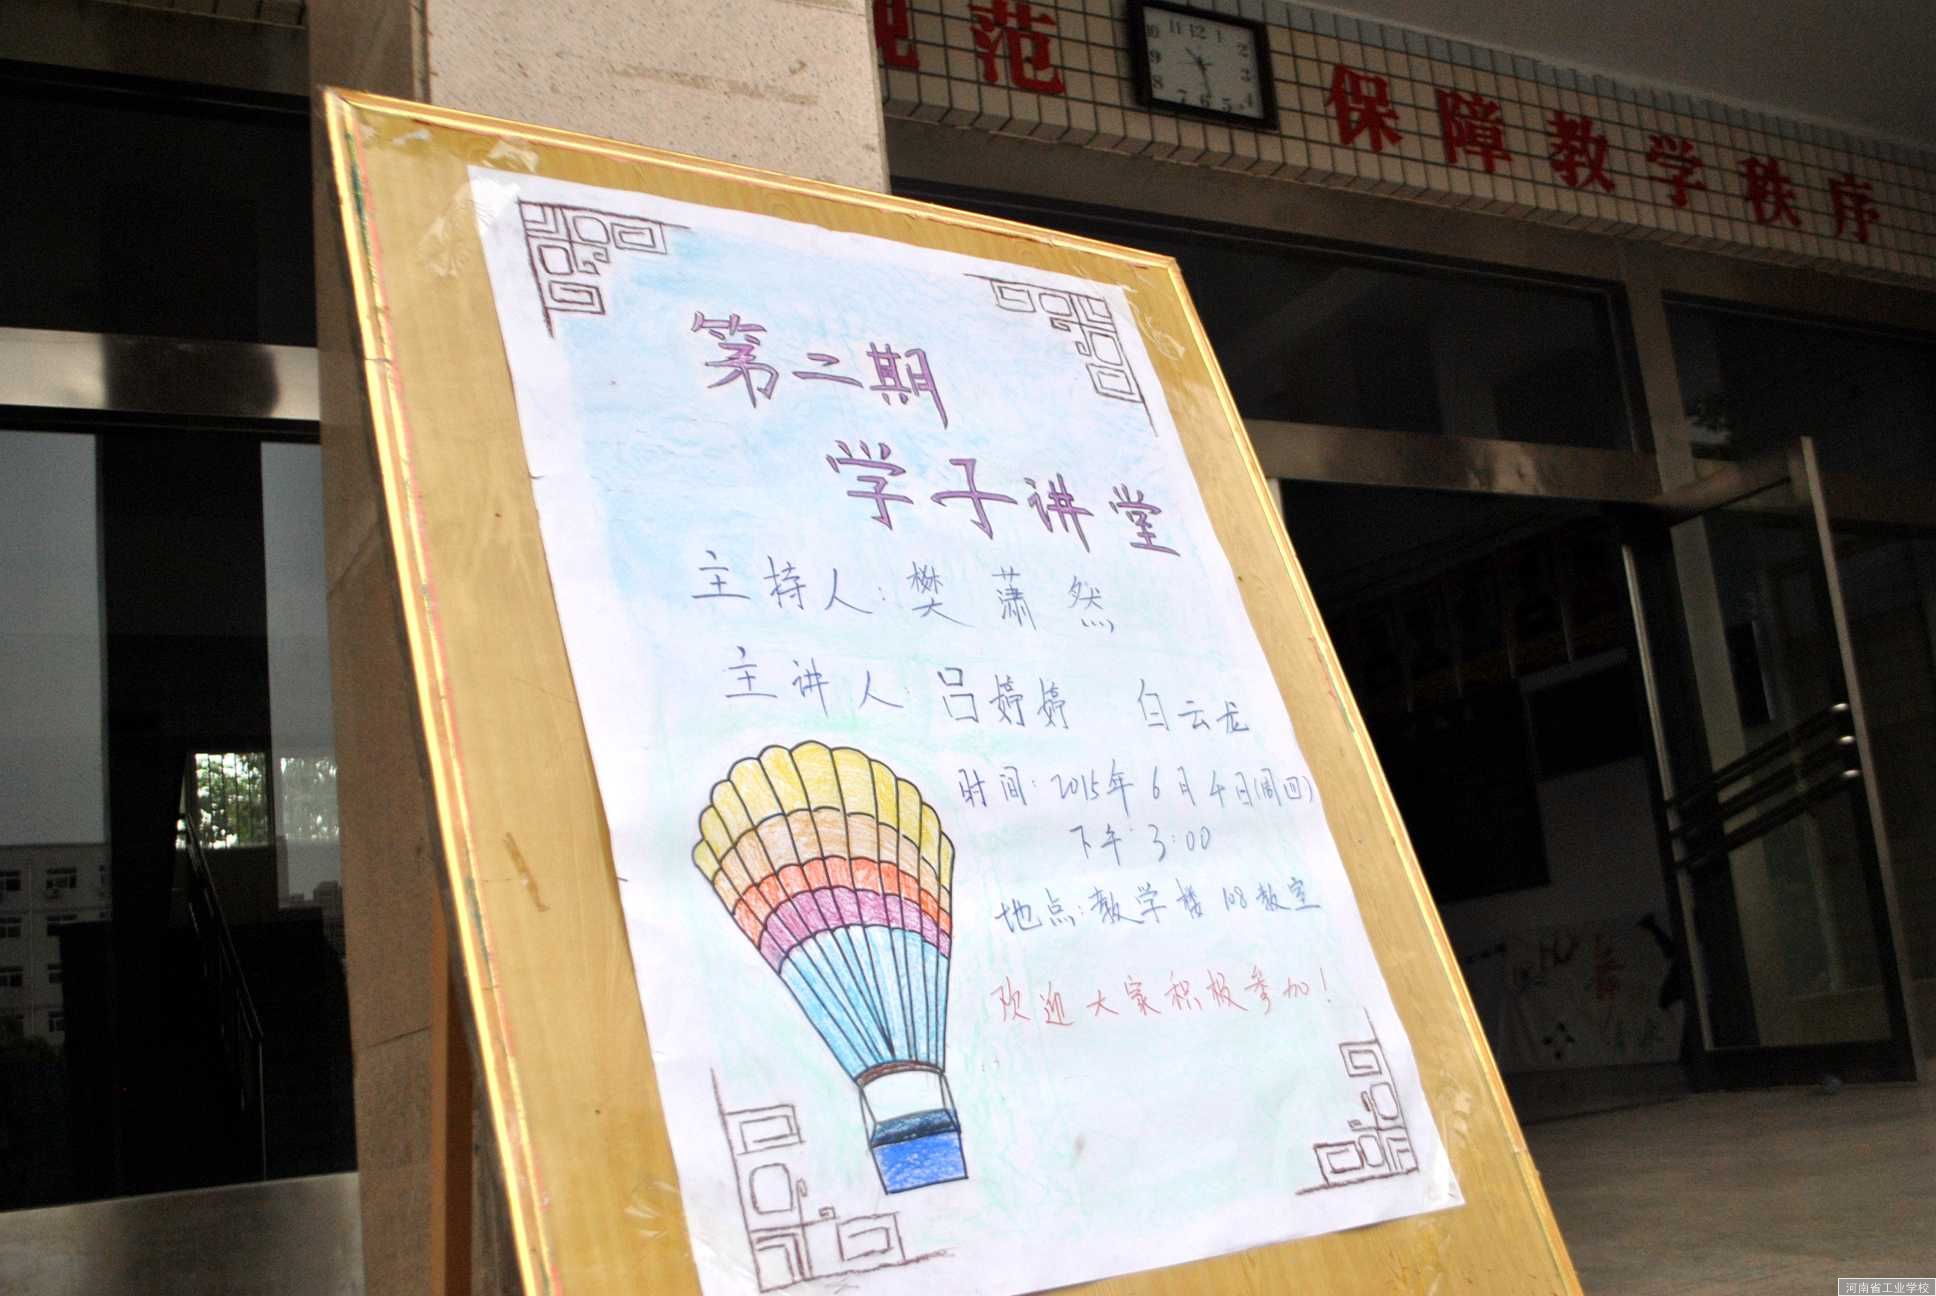 范 保障教学秩序
11 12 1
10 2
9 3
8 4
7 6 5
第二期
学子讲堂
主持人：樊潇然
主讲人：吕婷婷 白云龙
时间：2015年6月4日(周四)
下午：3:00
地点：教学楼108教室
欢迎大家积极参加！
河南省工业学校